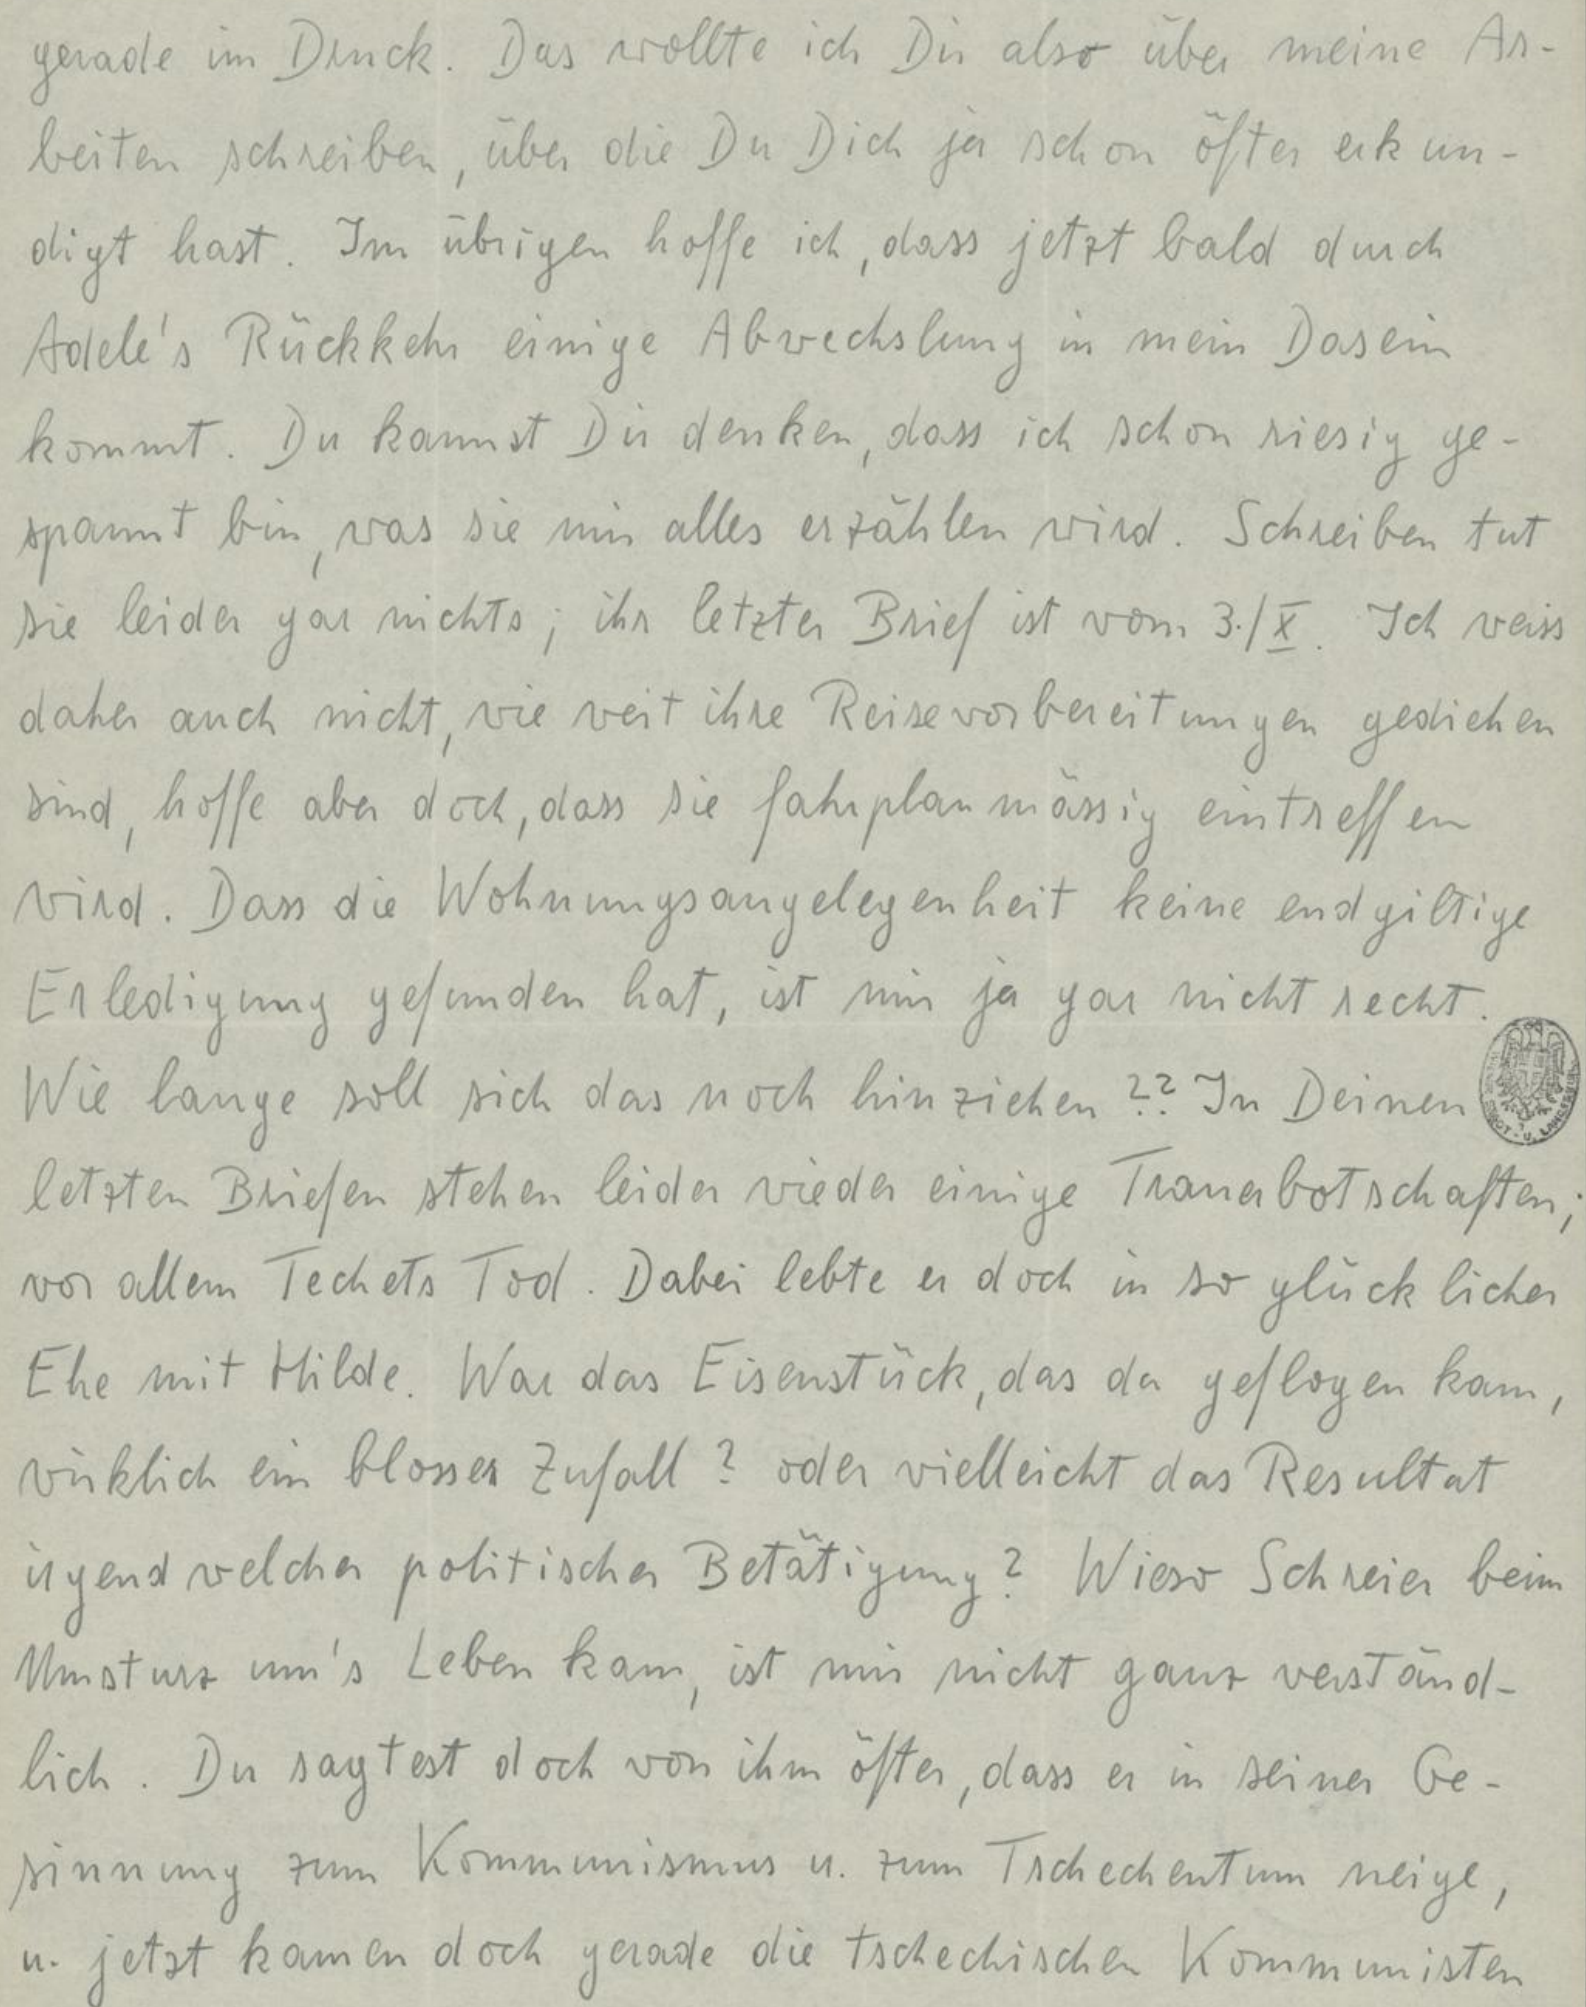 gerade im Druck. Das wollte ich Dir also über meine Ar-
beiten schreiben, über die Du Dich ja schon öfter erkun-
digt hast. Im übrigen hoffe ich, dass jetzt bald durch
Adele's Rückkehr einige Abwechslung in mein Dasein
kommt. Du kannst Dir denken, dass ich schon riesig ge-
spannt bin, was sie mir alles erzählen wird. Schreiben tut
sie leider gar nichts; ihr letzter Brief ist vom 3./X. Ich weiss
daher auch nicht, wie weit ihre Reisevorbereitungen gediehen
sind, hoffe aber doch, dass sie fahrplanmässig eintreffen
wird. Dass die Wohnungsangelegenheit keine endgiltige
Erledigung gefunden hat, ist mir ja gar nicht recht.
Wie lange soll sich das noch hinziehen?? In Deinen
letzten Briefen stehen leider wieder einige Trauerbotschaften;
vor allem Techets Tod. Dabei lebte er doch in so glücklicher
Ehe mit Hilde. War das Eisenstück, das da geflogen kam,
wirklich ein blosser Zufall? oder vielleicht das Resultat
irgendwelcher politischer Betätigung? Wieso Schreier beim
Umsturz um's Leben kam, ist mir nicht ganz verständ-
lich. Du sagtest doch von ihm öfter, dass er in seiner Ge-
sinnung zum Kommunismus u. zum Tschechentum neige,
u. jetzt kamen doch gerade die tschechischen Kommunisten